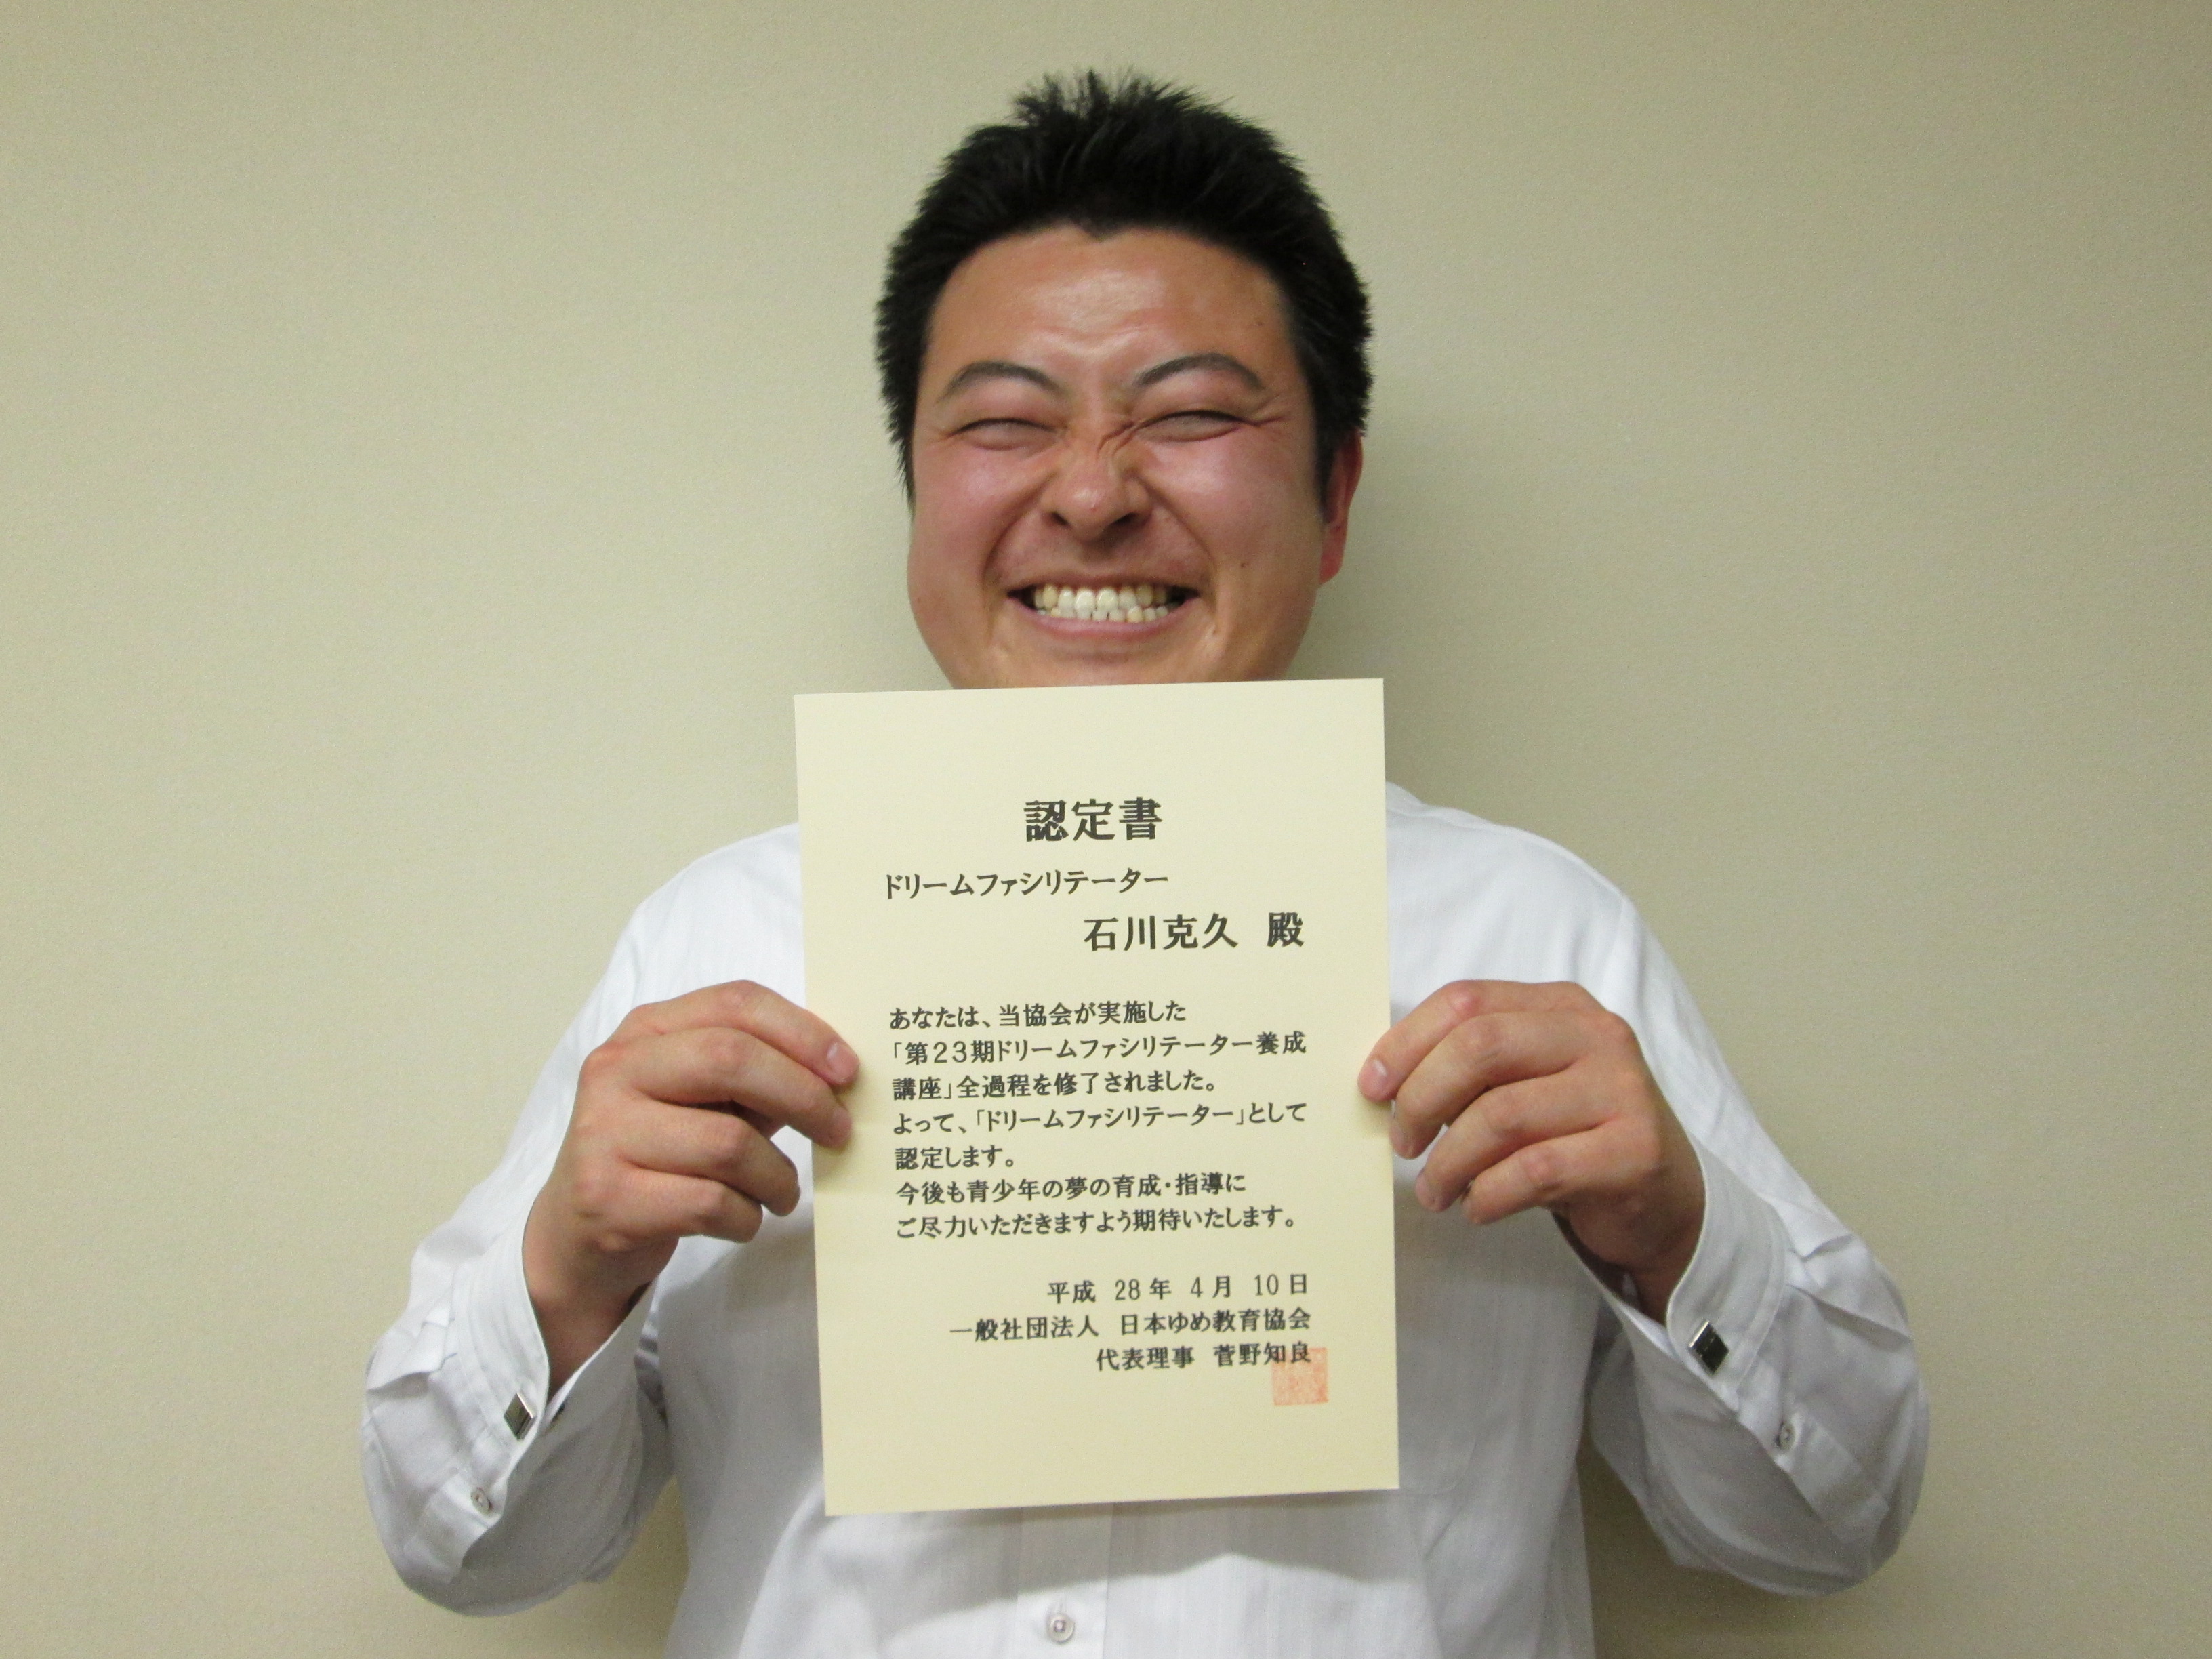 認定書
ドリームファシリテーター
石川克久 殿
あなたは、当協会が実施した
「第23期ドリームファシリテーター養成
講座」全過程を修了されました。
よって、「ドリームファシリテーター」として
認定します。
今後も青少年の夢の育成・指導に
ご尽力いただきますよう期待いたします。
平成 28年 4月 10日
一般社団法人 日本ゆめ教育協会
代表理事 菅野知良